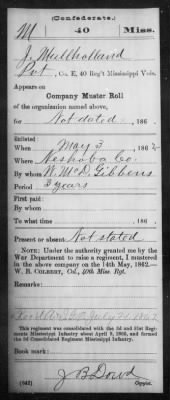 (Confederate.)
M 40 Miss.
J. Mulholland
Pvt, Co. E, 40 Reg't Mississippi Vols.
Appears on
Company Muster Roll
of the organization named above,
for Not dated, 186 .
Enlisted:
When May 3, 1862
Where Neshoba Co.
By whom W. McD. Gibbens
Period 3 years
First paid:
By whom
To what time , 186 .
Present or absent Not stated
NOTE: Under the authority granted me by the
War Department to raise a regiment, I mustered
in the above company on the 14th May, 1862.—
W. B. COLBERT, Col., 40th Miss. Regt.
Remarks:
July 21, 1862
This regiment was consolidated with the 3d and 31st Regi-
ments Mississippi Infantry about April 9, 1865, and formed
the 3d Consolidated Regiment Mississippi Infantry.
Book mark:
(642) J B Dowd
Copyist.